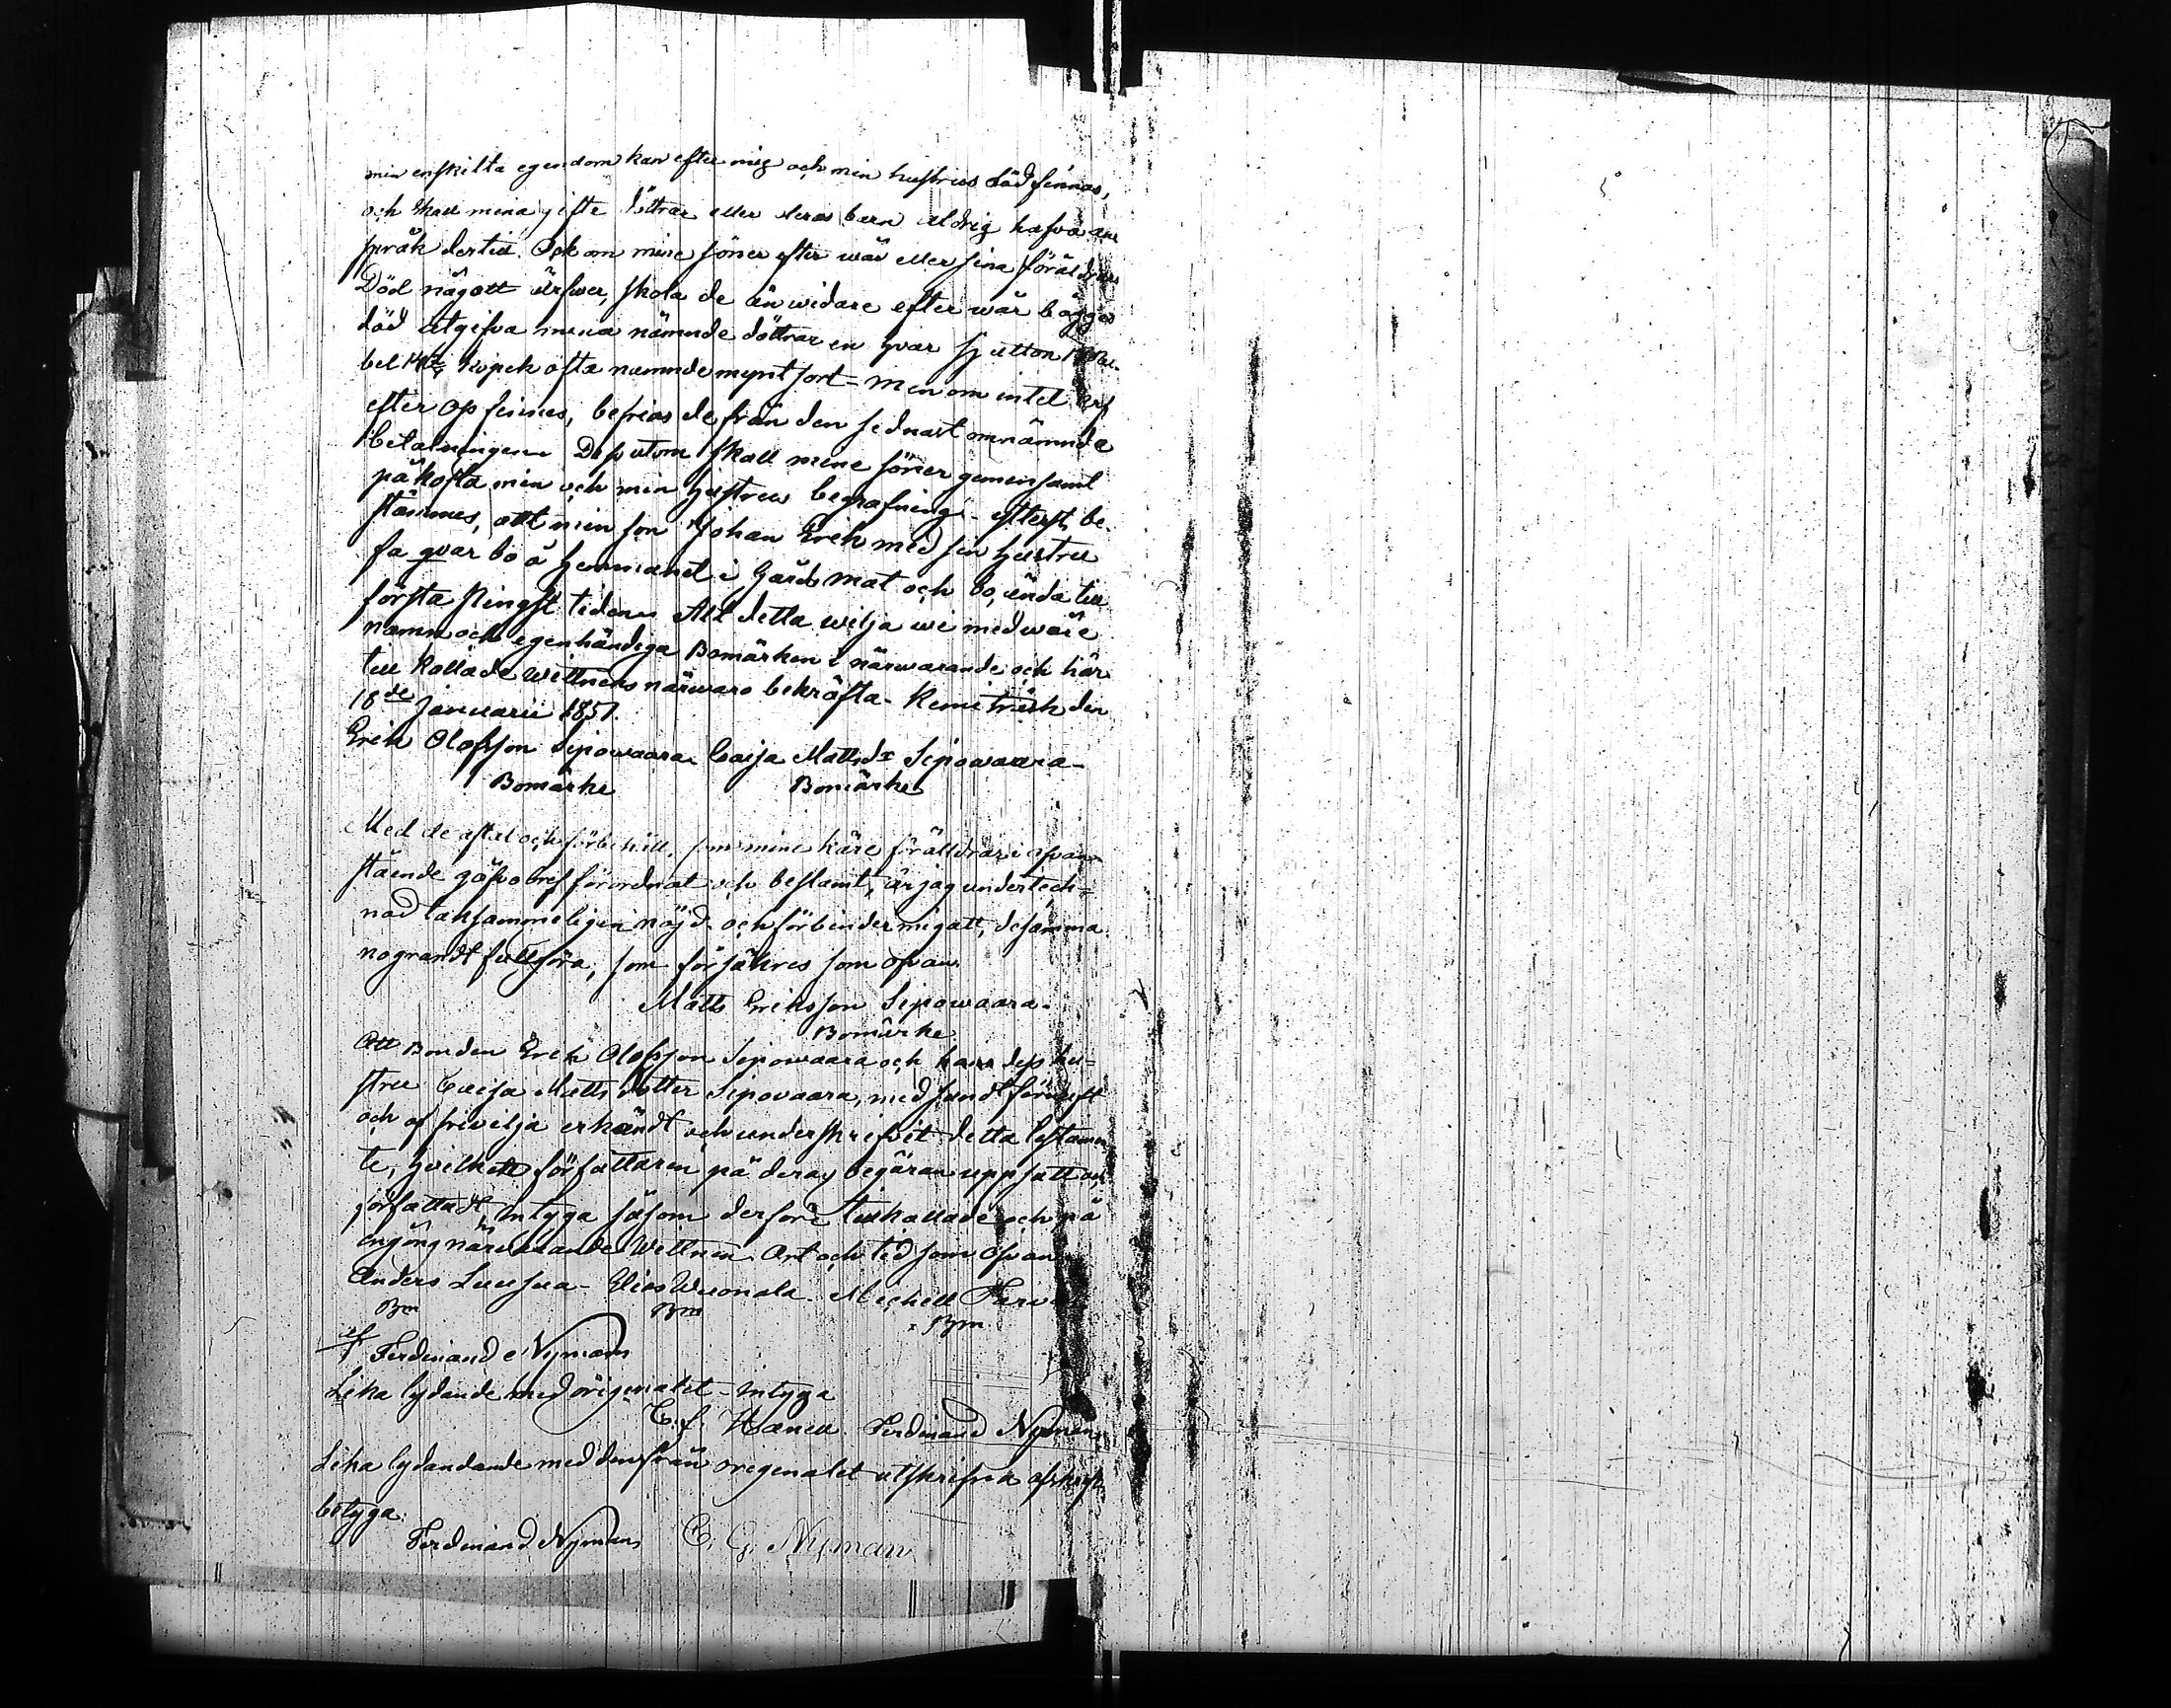 min enskilta egendom kan efter mig och min hustrus död finnas,
och skall mina gifte döttrar eller deras barn aldrig hafva an-
språk dertill. Och om mine söner efter wår eller sina föräldrars
Död någott ärfwer, skola de än widare efter wår bägges
död utgifva mina nämnde döttrar en hvar Sjutton Ru-
bel kopek ofta nämnde myntsort = men om intet arf
efter oss finnes, befrias de från den sednast omnämnda
betalningen Dessutom skall mine söner gemensamt
påkosta min och min hustrus begrafning - ytterst be-
stämmes, att min son Johan Erik med sin hustru
få qvar bo å hemmanet i Gårds mat och bo, ända till
första Pingst tiden Allt detta wilja wi med wåre
namn och egenhändiga Bomärken i närwarande och här
till kallade Wittnens närwaro bekräfta - Kemi träsk den
18de januarii 1851.
Erik Olofsson Sipowaara Caisa Mattsdr Sipowaara -
Bomärke Bomärke
Med de aftal och förbehåll, som mine käre föräldrar i ofvan
stående gåfvobref förordnat och bestämt, är jag undertech=
nad taksammeligen nöjd och förbinder mig att, desamma
nogrant fullgöra, som försäkres som ofvan.
Matts Eriksson Sipowaara -
Bomärke
Att Bonden Erik Olofsson Sipowaara och hans dess hu-
stru Caisa Matts dotter Sipovaara, med sundt förnuft
och af frivilja erkändt och underskrifvit detta testamen
te, hvilkett författaren på deras begäran uppsatt och
författadt, intyga såsom derföre tillkallade och på
engång närvarande Wittnen Ort och tid som ofvan
Anders Luusua - Elias Wuonala - Michell
Bm Bm Bm
af Ferdinand Nyman
Lika lydande med originalet - intyga
C. f. Wanell Ferdinand Nyman
Lika lydandande med den från originalet utskrifna afskrift
betyga:
Ferdinand Nyman C. G. Nyman